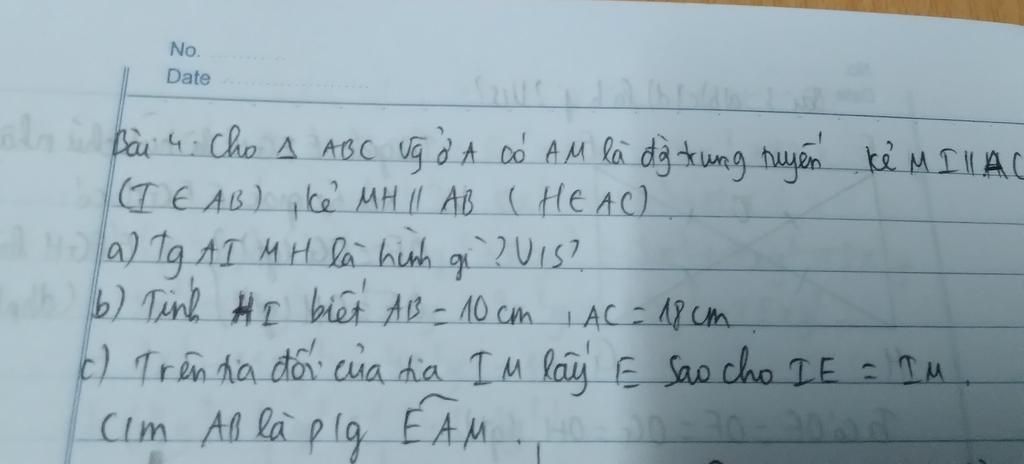 No.
Date
Bài 4: Cho Δ ABC vg ở A có AM là đg trung tuyến kẻ MI // AC
(I ∈ AB), kẻ MH // AB (H ∈ AC)
a) Tg AI MH là hình gì? V/S?
b) Tính HI biết AB = 10 cm, AC = 18 cm.
c) Trên tia đối của tia IM lấy E sao cho IE = IM.
C/m AB là p/g EAM.